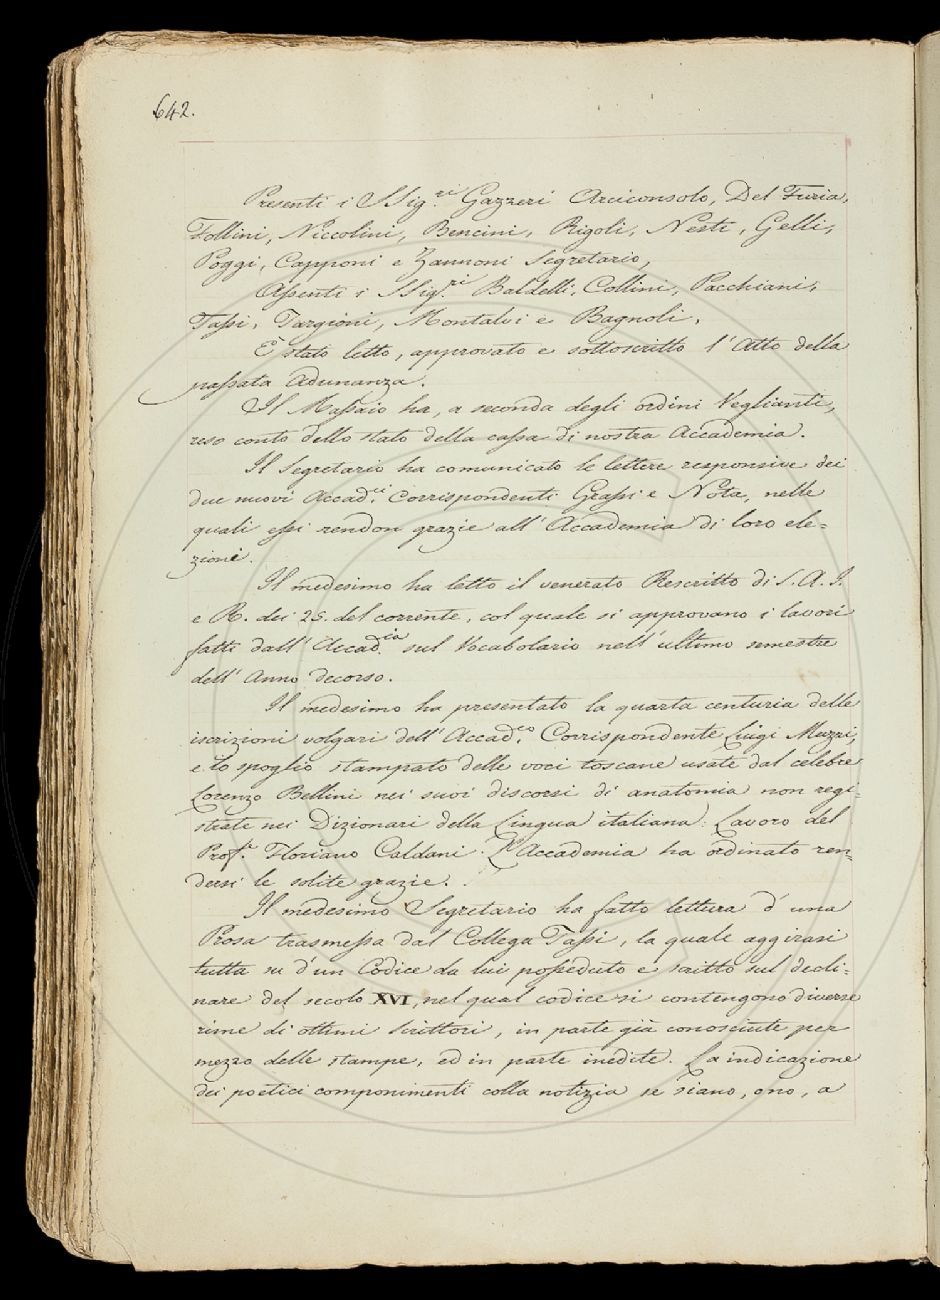 642.
Presenti i SSig.ri Gazzeri Arciconsolo, Del Furia,
Follini, Niccolini, Bencini, Rigoli, Nesti, Gelli,
Poggi, Capponi e Zannoni Segretario,
Assenti i SSig.ri Baldelli, Collini, Pacchiani,
Tassi, Targioni, Montalvi e Bagnoli.
È stato letto, approvato e sottoscritto l'Atto della
passata Adunanza.
Il Massaio ha, a seconda degli ordini Veglianti,
reso conto dello stato della cassa di nostra Accademia.
Il Segretario ha comunicato le lettere responsive dei
due nuovi Accad.ci Corrispondenti Grassi e Nota, nelle
quali essi rendon grazie all'Accademia di loro ele=
zione.
Il medesimo ha letto il venerato Rescritto di S. A. I.
e R. dei 25. del corrente, col quale si approvano i lavori
fatti dall'Accad.ia sul Vocabolario nell'ultimo semestre
dell'Anno decorso.
Il medesimo ha presentato la quarta centuria delle
iscrizioni volgari dell'Accad.co Corrispondente Luigi Muzzi,
e lo spoglio stampato delle voci toscane usate dal celebre
Lorenzo Bellini nei suoi discorsi di anatomia non regi=
strate nei Dizionari della Lingua italiana: Lavoro del
Prof.r Floriano Caldani. L'Accademia ha ordinato ren=
dersi le solite grazie.
Il medesimo Segretario ha fatto lettura d'una
Prosa trasmessa dal Collega Tassi, la quale aggirasi
tutta su d'un Codice da lui posseduto e scritto sul decli=
nare del secolo XVI, nel qual codice si contengono diverse
rime di ottimi Scrittori, in parte già conosciute per
mezzo delle stampe, ed in parte inedite. La indicazione
dei poetici componimenti colla notizia se siano, o no, a